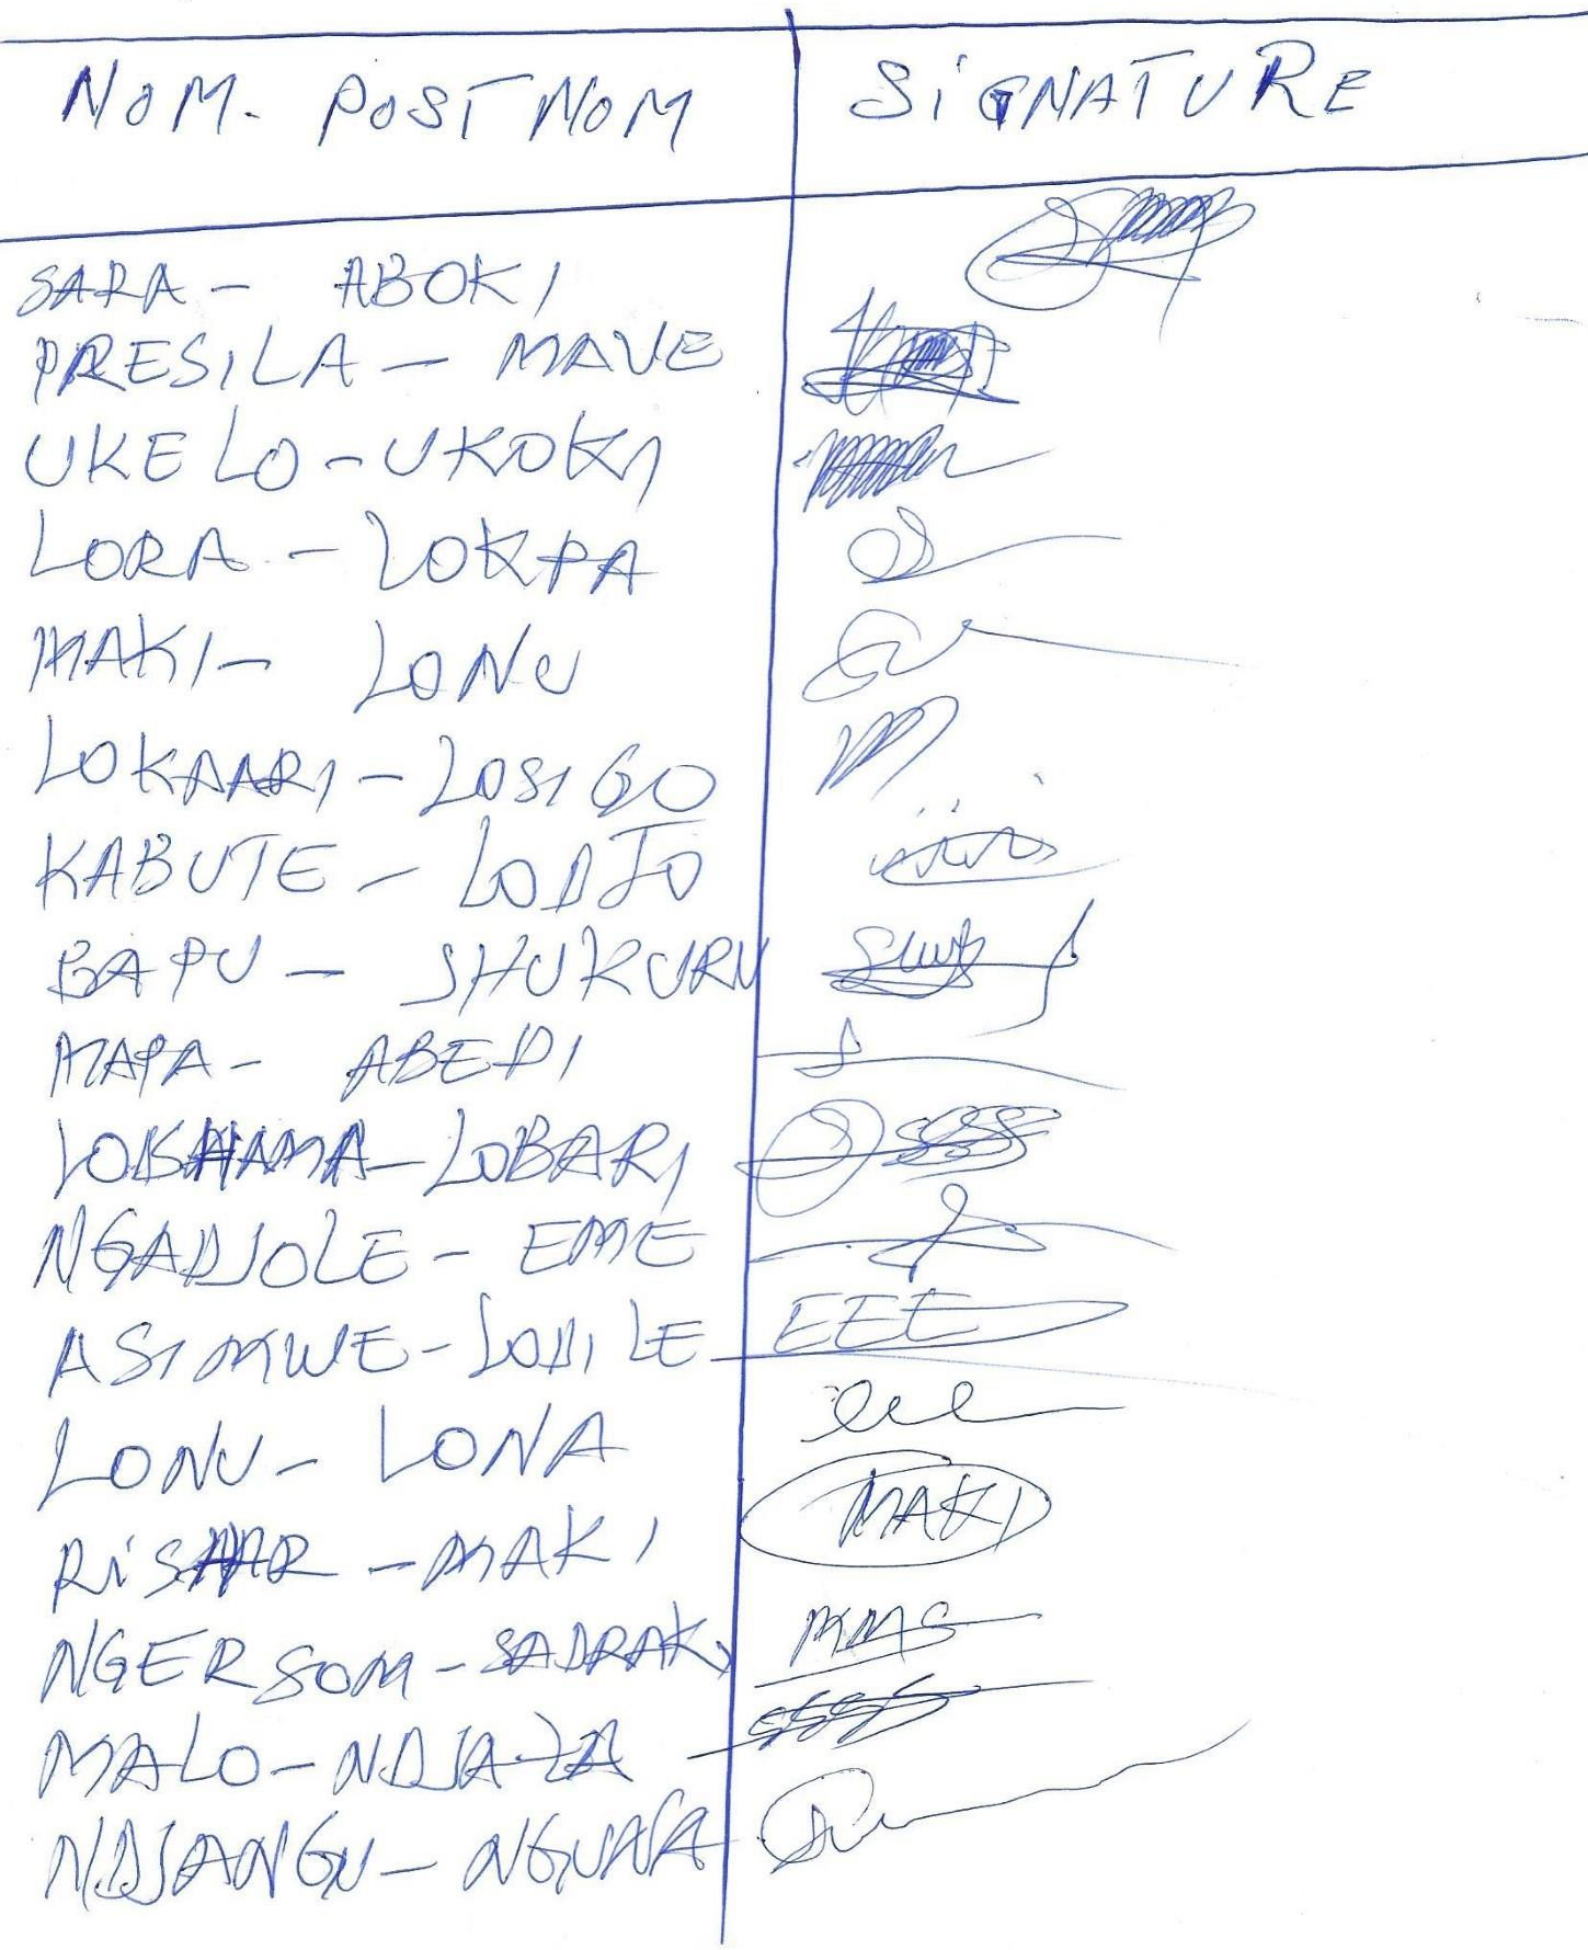 NOM. POSTNOM SIGNATURE
SARA - ABOKI
PRESILA - MAVE
UKELO - UKOKI
LORA - LOKPA
MAKI - LONU
LOKAARI - LOSIGO
KABUTE - LODJO
BAPU - SHUKURU
MAPA - ABEDI
LOBARI
NGADJOLE - EME
ASIMWE - LODILE EEE
LONU - LONA
RISHAR - MAKI MAKI
NGERSOM - SADRAK
MALO - NDJAZA
NDJANGU -